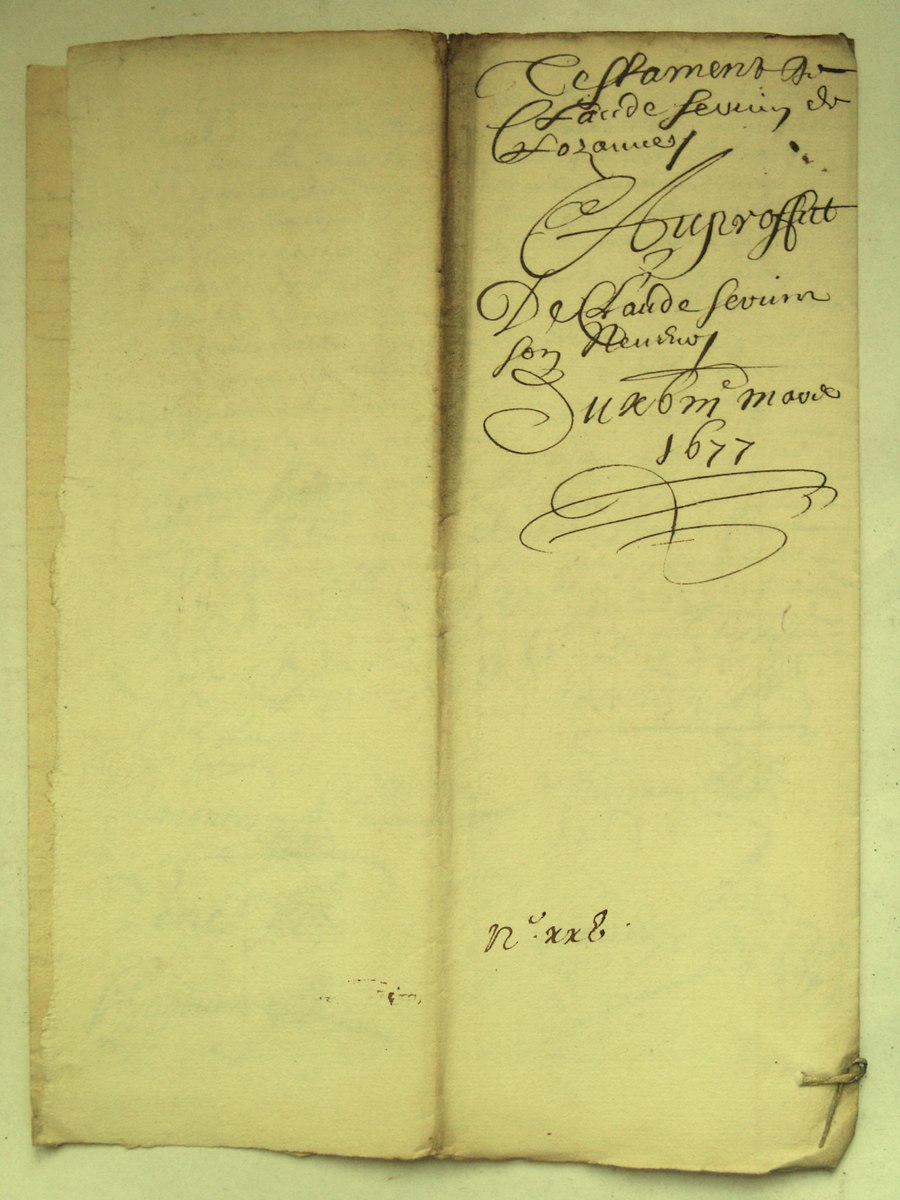 Testament de
Claude sevrin de
Lozanne
Au proffict
De Claude sevrin
son Neuveu
Du xbme mars
1677
N.o xxb